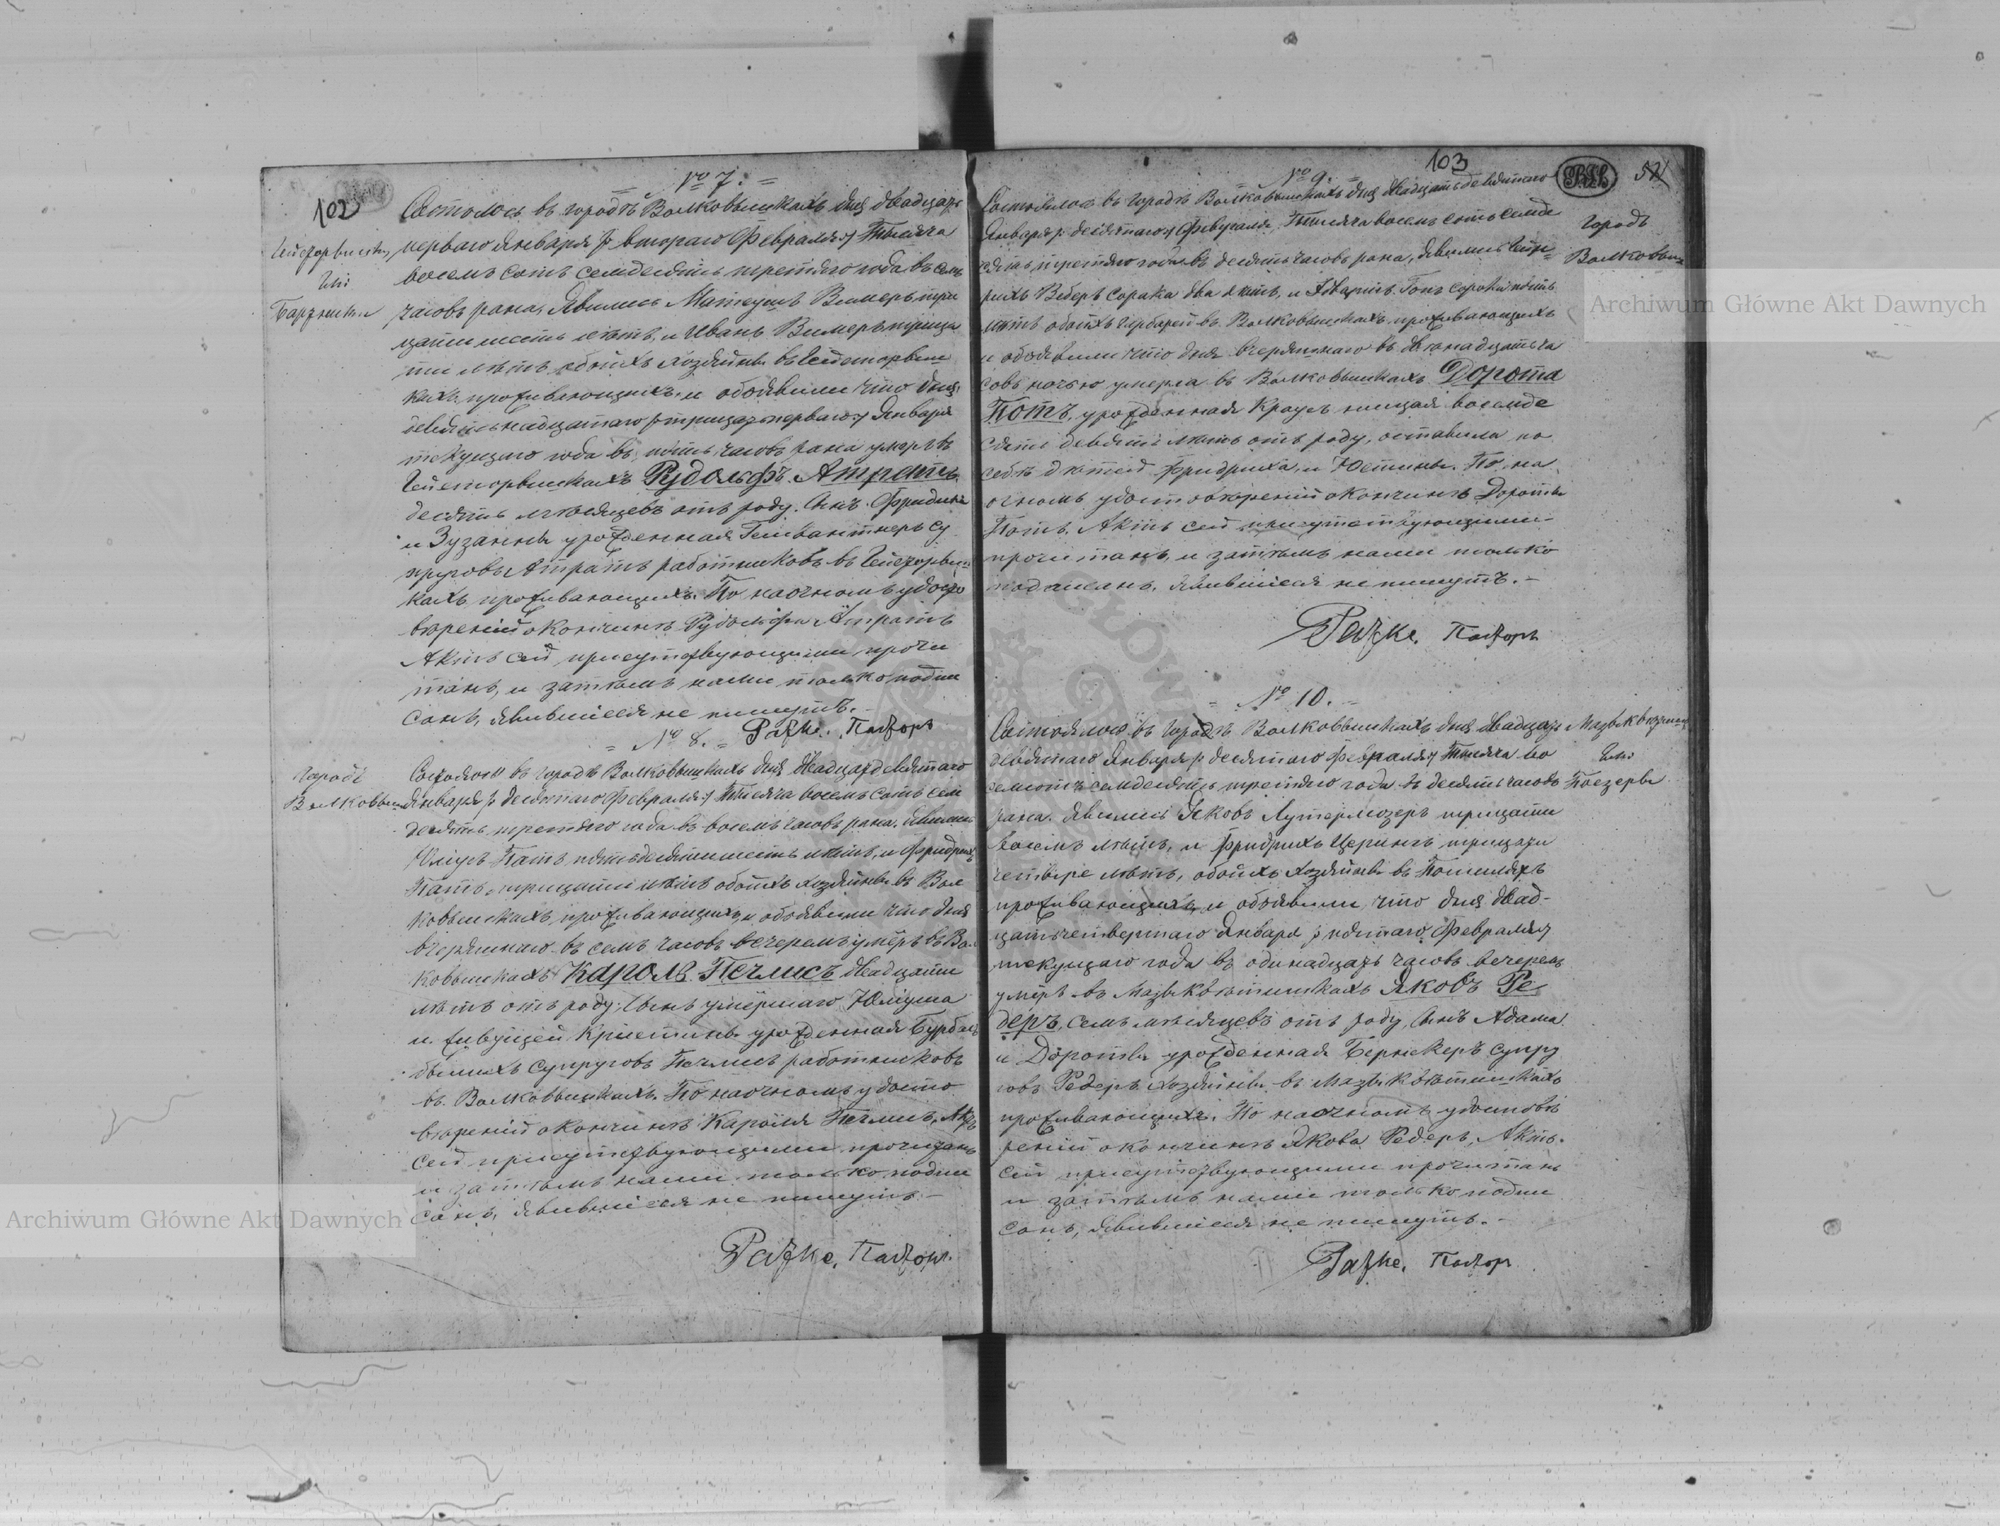 102
№ 7.
Состолось въ городѣ Волковышкахъ дня двадцать
перваго Января /: втораго Февраля :/ Тысяча
восемь сотъ семдесять третяго года въ семь
часовъ рана, Явились Матеушъ Вимеръ три
цати шесть лѣтъ, и Иванъ Вимеръ трица
ти лѣтъ обоихъ хозяйны въ
кахъ проживающихъ, и объявили что дня
девятьнадцатаго /: трицать перваго :/ Января
текущаго года въ пять часовъ рана умерлъ
Рудольфъ Атратъ
десять мѣсяцевъ отъ роду, Сынъ Фридиха
и Зузанны урожденная су
пруговъ Атратъ работниковъ въ
кахъ проживающихъ. По наочномъ удосто
вѣреніи окончинѣ Рудольфа Атратъ
Актъ сей присутствующими прочи
танъ, и затѣмъ нами только подпи
санъ, явившіеся не пишутъ.
Ражке. Пасторъ
№ 8.
Городъ
Волковышки
Состоялось въ городѣ Волковышкахъ дня двадцать девятаго
Января /: десятаго Февраля :/ Тысяча восемь сотъ сем
десять третяго года въ восемь часовъ рана, Явились
Юлiусъ Патъ пятьдесяти шесть лѣтъ, и Фридрихъ
Патъ трицати лѣтъ обоихъ хозяйны въ Вол
ковышкахъ проживающихъ и объявили что дня
вчерашнаго въ семь часовъ вечеремъ умерлъ въ Вол
ковышкахъ Кароль Печлисъ двадцати
лѣтъ отъ роду, Сынъ умершаго Юлiуша
и живущей Кристины урожденная
бывшихъ Супруговъ Печлисъ работниковъ
въ Волковышкахъ. По наочномъ удосто
вѣреніи окончинѣ Кароля Печлисъ, Актъ
сей присутствующими прочитанъ
и затѣмъ нами только подпи
санъ, явившіеся не пишутъ.
Ражке, Пасторъ.
103
52
№ 9.
Городъ
Волковышки
Состоялось въ городѣ Волковышкахъ дня двадцать девятаго
Января /: десятаго :/ Февраля, Тысяча восемь сотъ семде
сять третяго года въ десять часовъ рана, Явились Гейн
рихъ Веберъ сорока два лѣтъ, и Эдвартъ Гопъ сорокъ пять
лѣтъ обоихъ Гарбарей въ Волковышкахъ проживающихъ
и объявили что дня вчерашнаго въ двѣнадцать ча
совъ ночью умерла въ Волковышкахъ Дорота
Потъ, урожденная Крауль нищая восемде
сяти девяти лѣтъ отъ роду, оставила по
себѣ дѣтей Фридриха, и Юстины. По на
очномъ удостовѣреніи окончинѣ Дороты
Потъ. Актъ сей присутствующими
прочитанъ, и затѣмъ нами только
подписанъ, явившіеся не пишутъ.
Ражке. Пасторъ
№ 10.
или
Поезеры
Состоялось въ городѣ Волковышкахъ дня двадцать
девятаго Января /: десятаго Февраля :/ Тысяча во
семсотъ семдесять третяго года въ десять часовъ
рана. Явились Яковъ Лутермозеръ трицати
восемь лѣтъ, и Фридрихъ Церинъ трицати
четыре лѣтъ, обоихъ хозяйны въ
проживающихъ, и объявили, что дня двад-
цатьчетвертаго Января /: пятаго Февраля :/
текущаго года въ одинадцать часовъ вечеремъ
умерлъ въ Яковъ Ре
деръ, семь мѣсяцевъ отъ роду, Сынъ Адама
и Дороты урожденная Бернекеръ супру
говъ Редеръ хозяйны въ
проживающихъ. По наочномъ удостовѣ
реніи окончинѣ Якова Редеръ, Актъ
сей присутствующими прочитанъ
и затѣмъ нами только подпи
санъ, явившіеся не пишутъ.
Ражке. Пасторъ
Archiwum Główne Akt Dawnych
Archiwum Główne Akt Dawnych